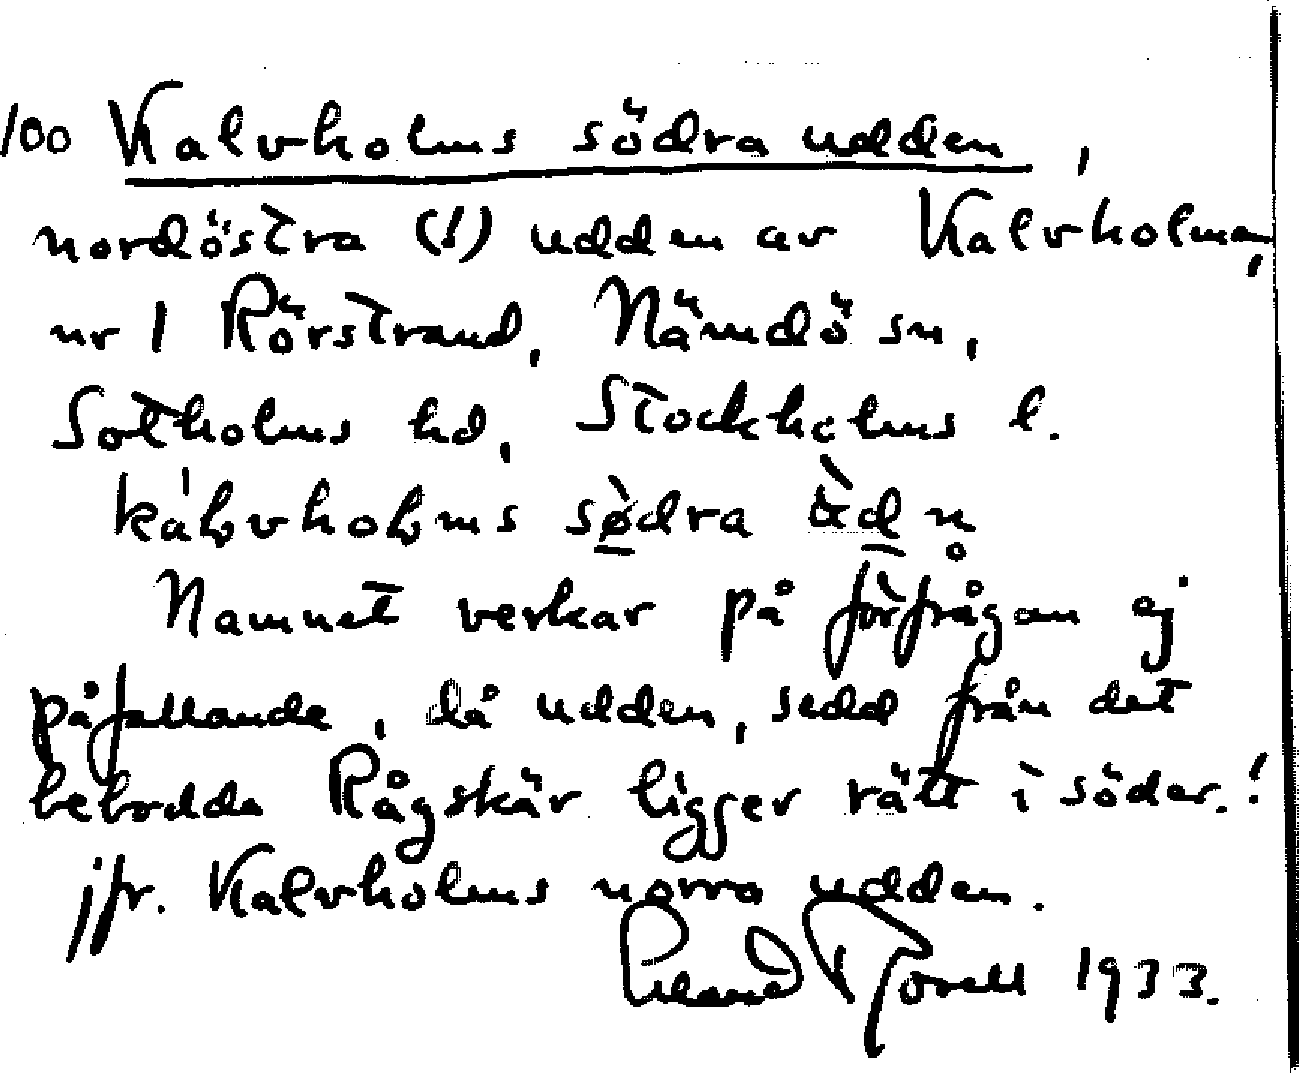 100 Kalvholms södra udden,
nordöstra (!) udden av Kalvholmen,
nr 1 Rörstrand, Nämdö sn,
Sotholms hd, Stockholms l.
södra
Namnet verkar på förfrågan ej
påfallande, då udden, sedd från det
bebodda Rågskär ligger rätt i söder.!
jfr. Kalvholms norra udden.
1933.